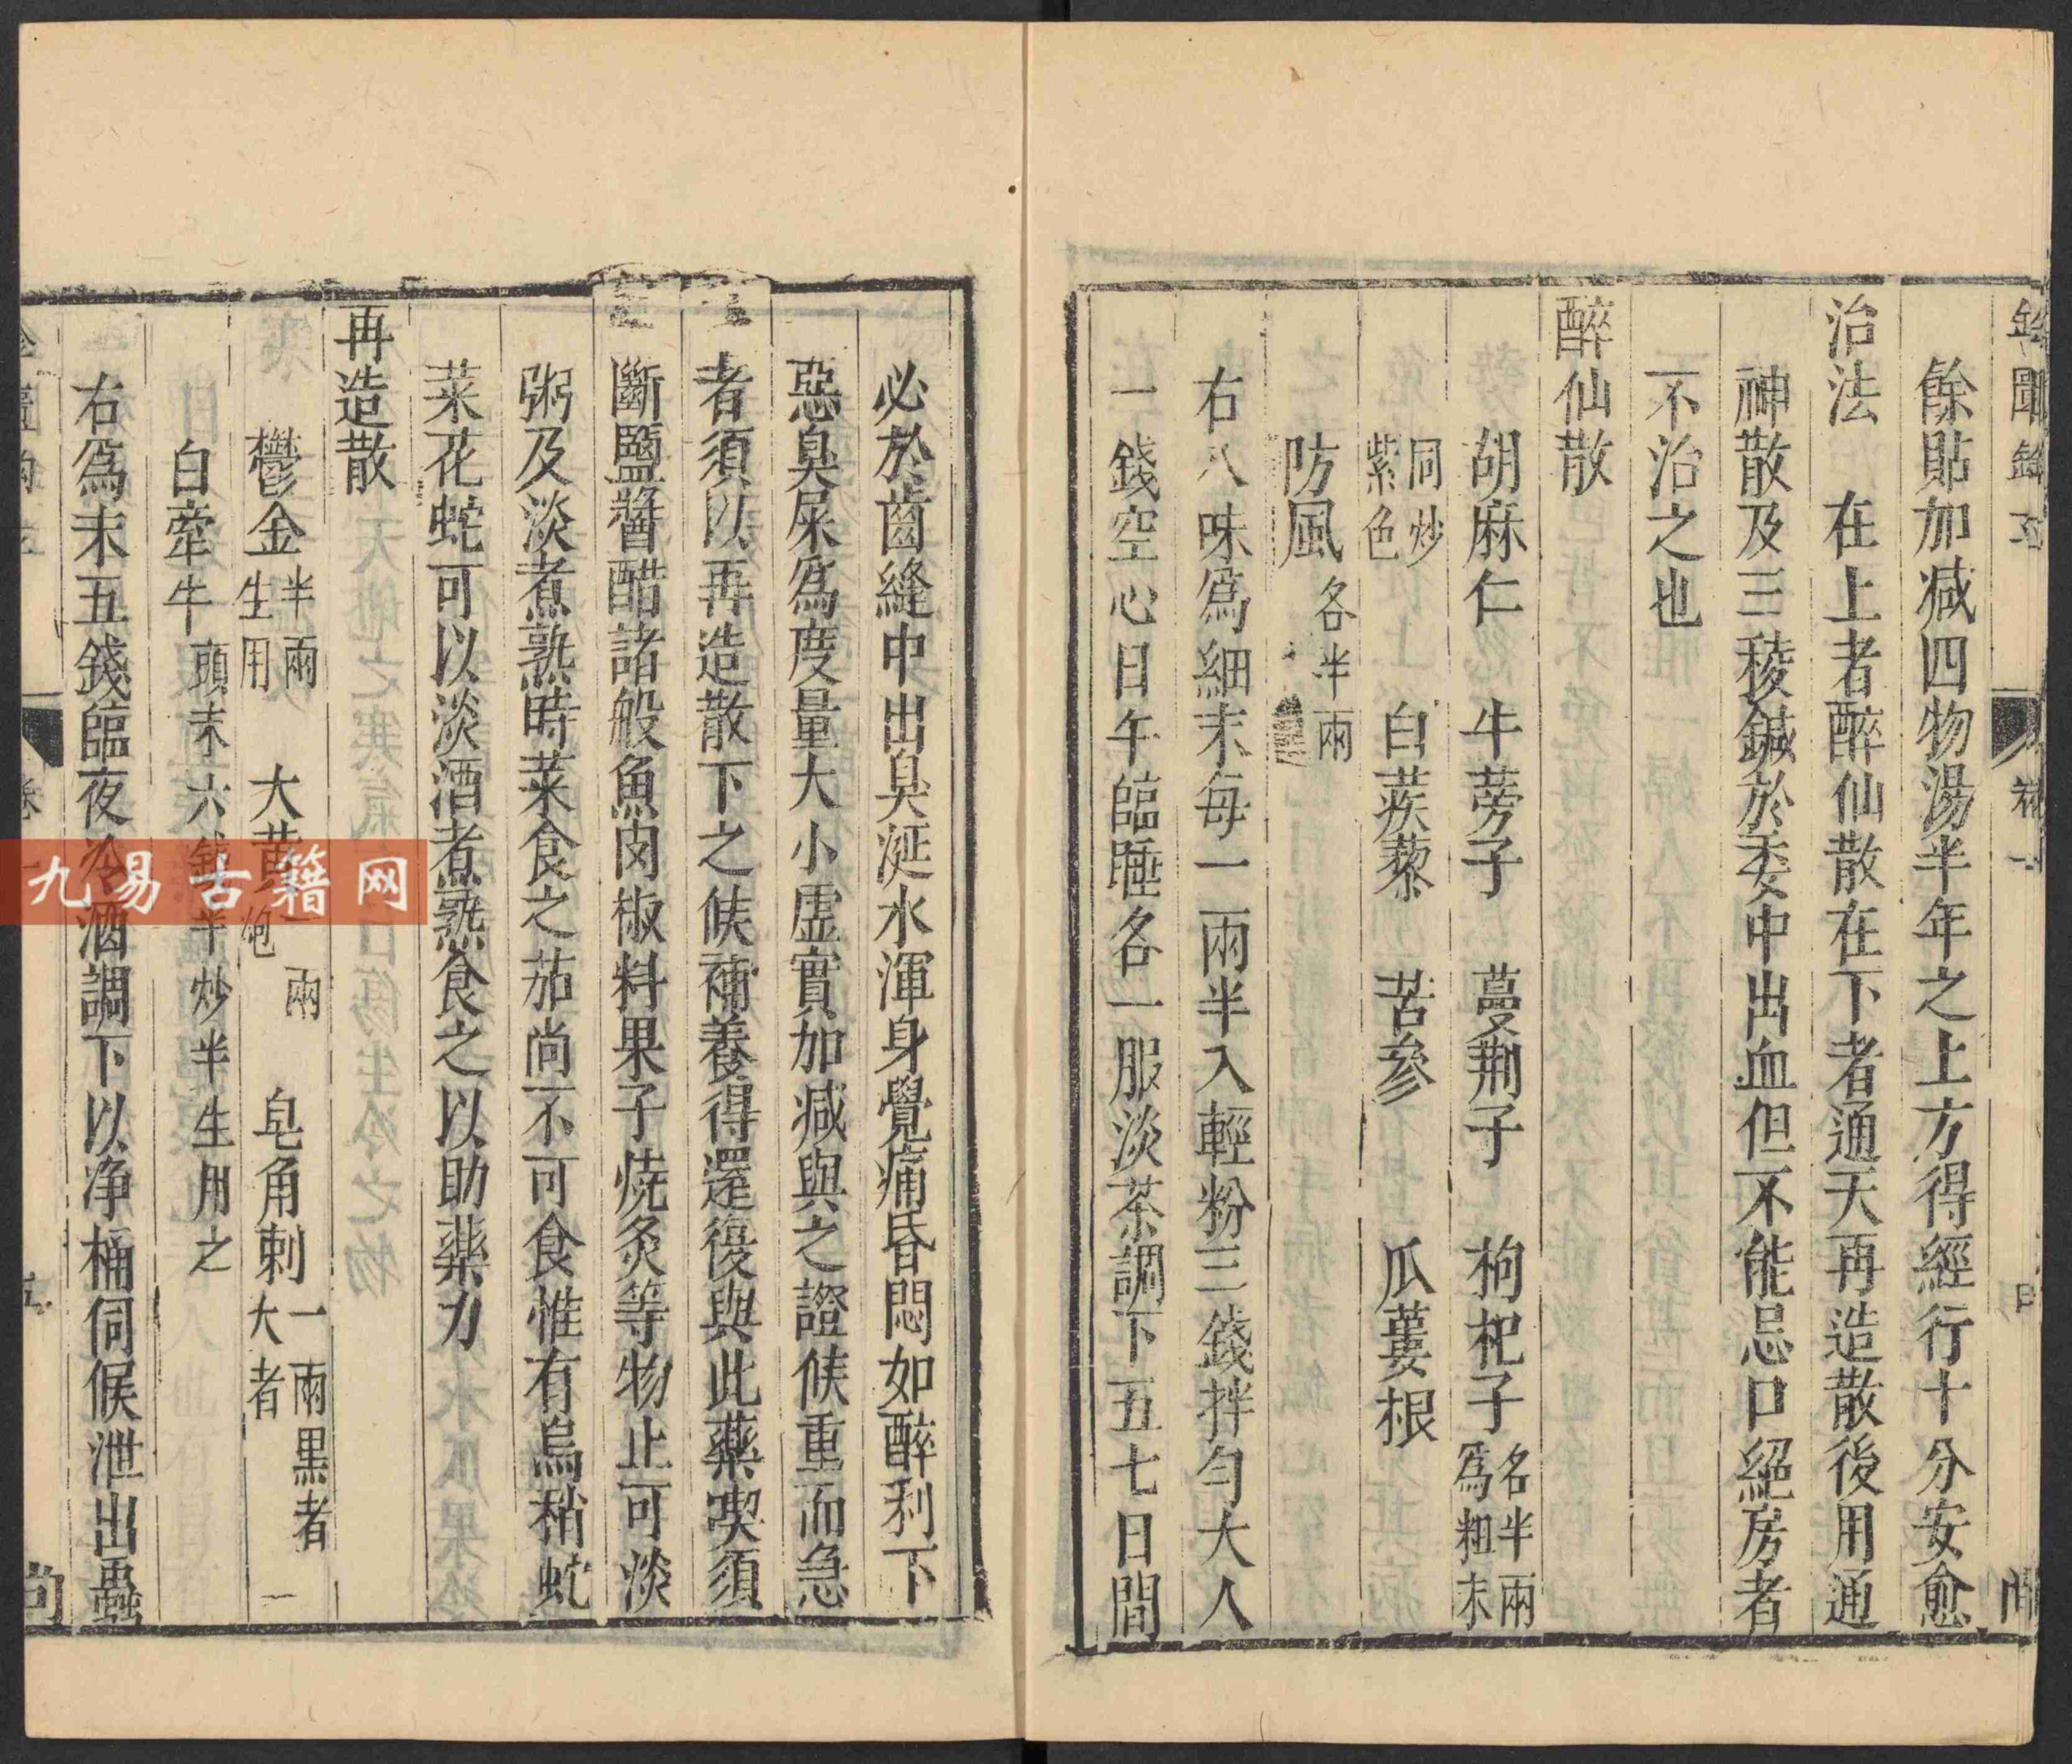 餘貼加減四物湯半年之上方得經行十分安愈
治法　在上者醉仙散在下者通天再造散後用通
神散及三稜鍼於委中出血但不能忌口絕房者
不治之也
醉仙散
胡麻仁　牛蒡子　蔓荆子　枸杞子 名半兩爲粗末
同炒紫色　白蒺藜　苦參　瓜蔞根
防風 各半兩
右八味爲細末每一兩半入輕粉三錢拌勻大人
一錢空心日午臨睡各一服淡茶調下五七日間
必於齒縫中出臭涎水渾身覺痛昏悶如醉利下
惡臭屎爲度量大小虛實加減與之證候重而急
者須以再造散下之候補養得還復與此藥喫須
斷鹽醬醋諸般魚肉椒料果子燒炙等物止可淡
粥及淡煮熟時菜食之茄尚不可食惟有烏稍蛇
菜花蛇可以淡酒煮熟食之以助藥力
再造散
鬱金 半兩生用　大黃 一兩炮　皂角刺 一兩黑者大者
白牽牛 頭末六錢半炒半生用之
右爲末五錢臨夜冷酒調下以净桶伺候泄出蟲
九易古籍网